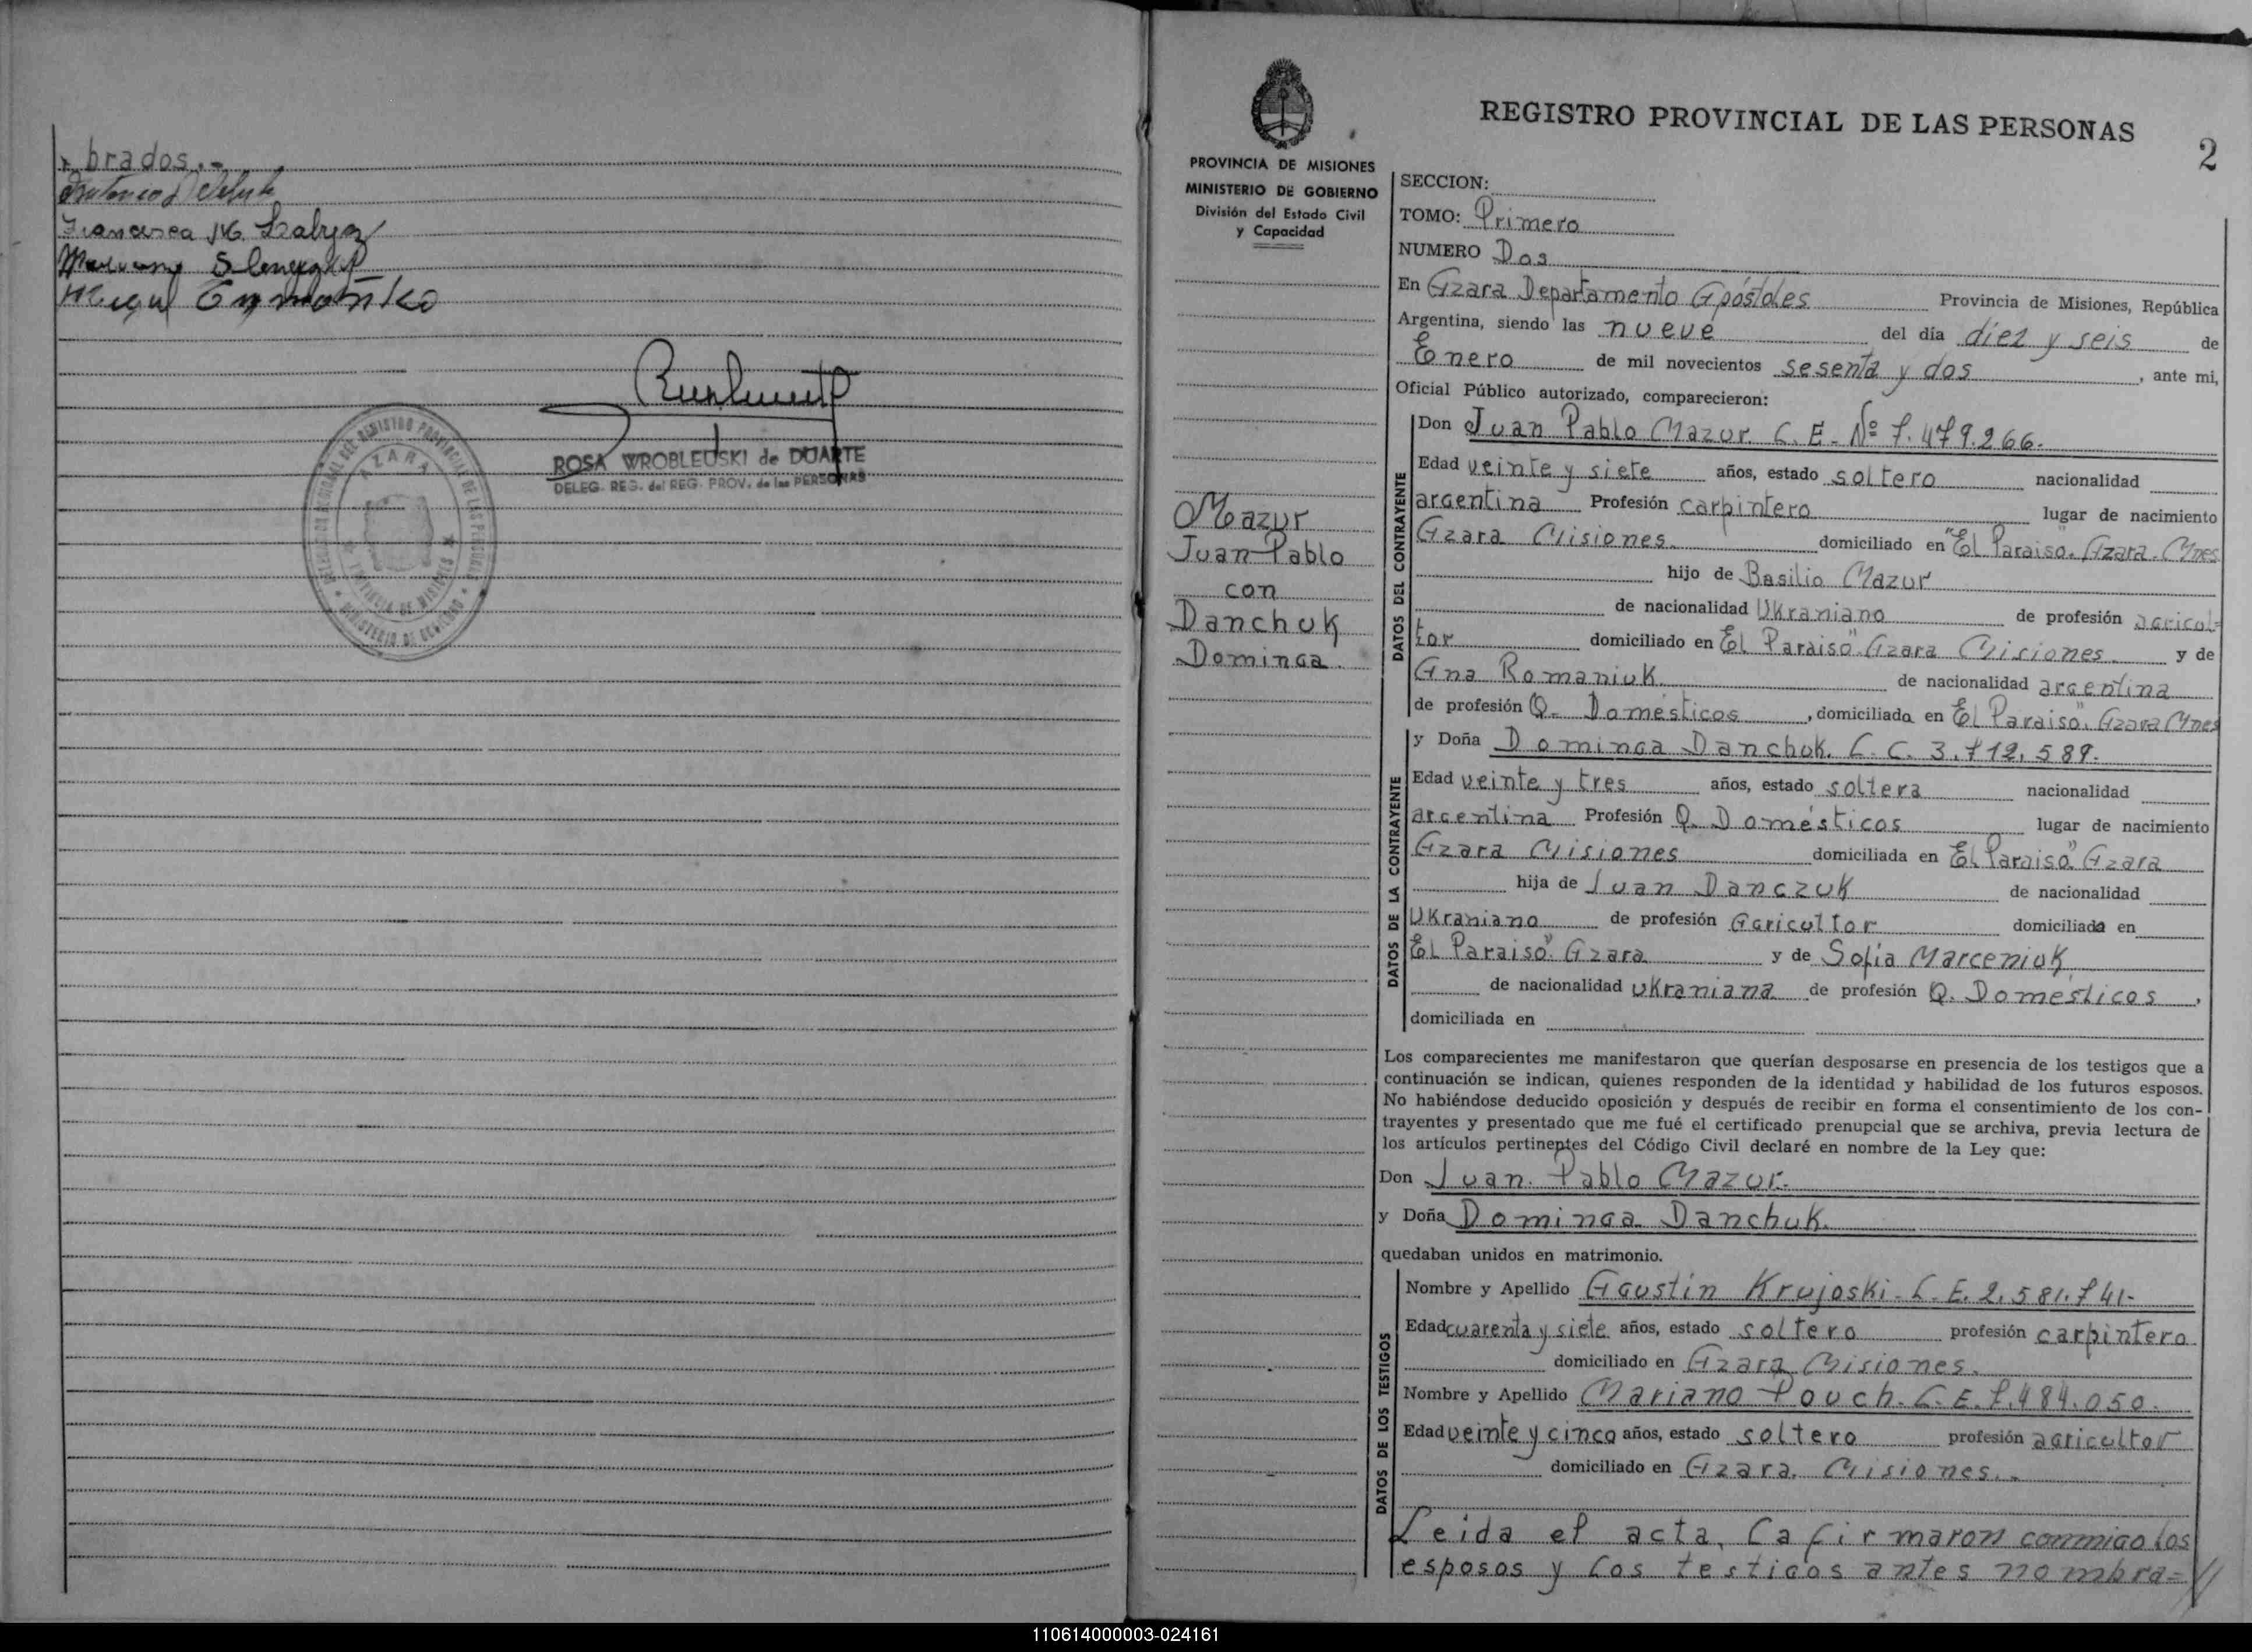 brados.-
Francisca
Mariano
Miguel
ROSA WROBLEUSKI de DUARTE
DELEG. REG. del REG. PROV. de las PERSONAS
AZARA
PROVINCIA DE MISIONES
MINISTERIO DE GOBIERNO
REGISTRO PROVINCIAL DE LAS PERSONAS
2
PROVINCIA DE MISIONES
MINISTERIO DE GOBIERNO
División del Estado Civil
y Capacidad
Mazur
Juan Pablo
con
Danchuk
Dominga.
SECCION:
TOMO: Primero
NUMERO Dos
En Azara Departamento Apóstoles Provincia de Misiones, República
Argentina, siendo las nueve del día diez y seis de
Enero de mil novecientos sesenta y dos, ante mi,
Oficial Público autorizado, comparecieron:
DATOS DEL CONTRAYENTE
Don Juan Pablo Mazur L. E. Nº 7.479.266.
Edad veinte y siete años, estado soltero nacionalidad
argentina Profesión carpintero lugar de nacimiento
Azara Misiones. domiciliado en "El Paraiso". Azara. Mnes
hijo de Basilio Mazur
de nacionalidad Ukraniano de profesión agricul=
tor domiciliado en El Paraiso". Azara Misiones. y de
Ana Romaniuk de nacionalidad argentina
de profesión Q. Domésticos, domiciliada en El Paraiso". Azara Mnes
DATOS DE LA CONTRAYENTE
y Doña Dominga Danchuk. L. C. 3.712.589.
Edad veinte y tres años, estado soltera nacionalidad
argentina Profesión Q. Domésticos lugar de nacimiento
Azara Misiones domiciliada en El Paraiso" Azara
hija de Juan Danczuk de nacionalidad
Ukraniano de profesión Agricultor domiciliada en
El Paraiso". Azara y de Sofia Marceniuk
de nacionalidad ukraniana de profesión Q. Domésticos,
domiciliada en
Los comparecientes me manifestaron que querían desposarse en presencia de los testigos que a
continuación se indican, quienes responden de la identidad y habilidad de los futuros esposos.
No habiéndose deducido oposición y después de recibir en forma el consentimiento de los con-
trayentes y presentado que me fué el certificado prenupcial que se archiva, previa lectura de
los artículos pertinentes del Código Civil declaré en nombre de la Ley que:
Don Juan Pablo Mazur.
y Doña Dominga Danchuk.
quedaban unidos en matrimonio.
DATOS DE LOS TESTIGOS
Nombre y Apellido Agustin Krujoski. L. E. 2.581.741-
Edad cuarenta y siete años, estado soltero profesión carpintero
domiciliado en Azara Misiones.
Nombre y Apellido Mariano Pouch. L. E. 7.484.050.
Edad veinte y cinco años, estado soltero profesión agricultor
domiciliado en Azara. Misiones.-
Leida el acta, la firmaron conmigo los
esposos y los testigos antes nombra=//
110614000003-024161